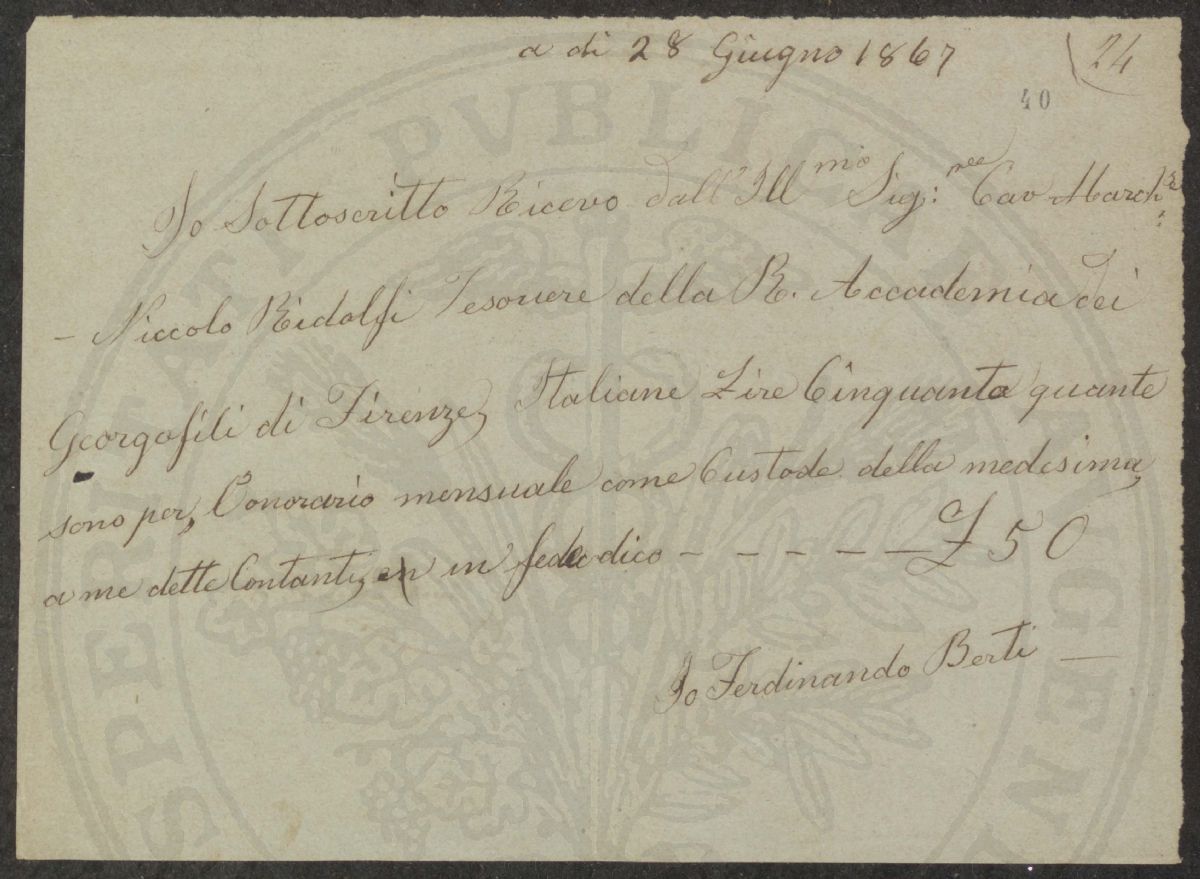 a di 28 Giugno 1867
24
40
Io Sottoscritto Ricevo dall' Ill mio Sig: nee Cav March:se
- Niccolo Ridolfi Tesoriere della R. Accademia dei
Georgofili di Firenze, Italiane Lire Cinquanta quante
sono per, Onorario mensuale come Custode della medesima,
a me dette Contanti, in fede dico - - - - - £ 50
Io Ferdinando Berti —
PVBLICAE